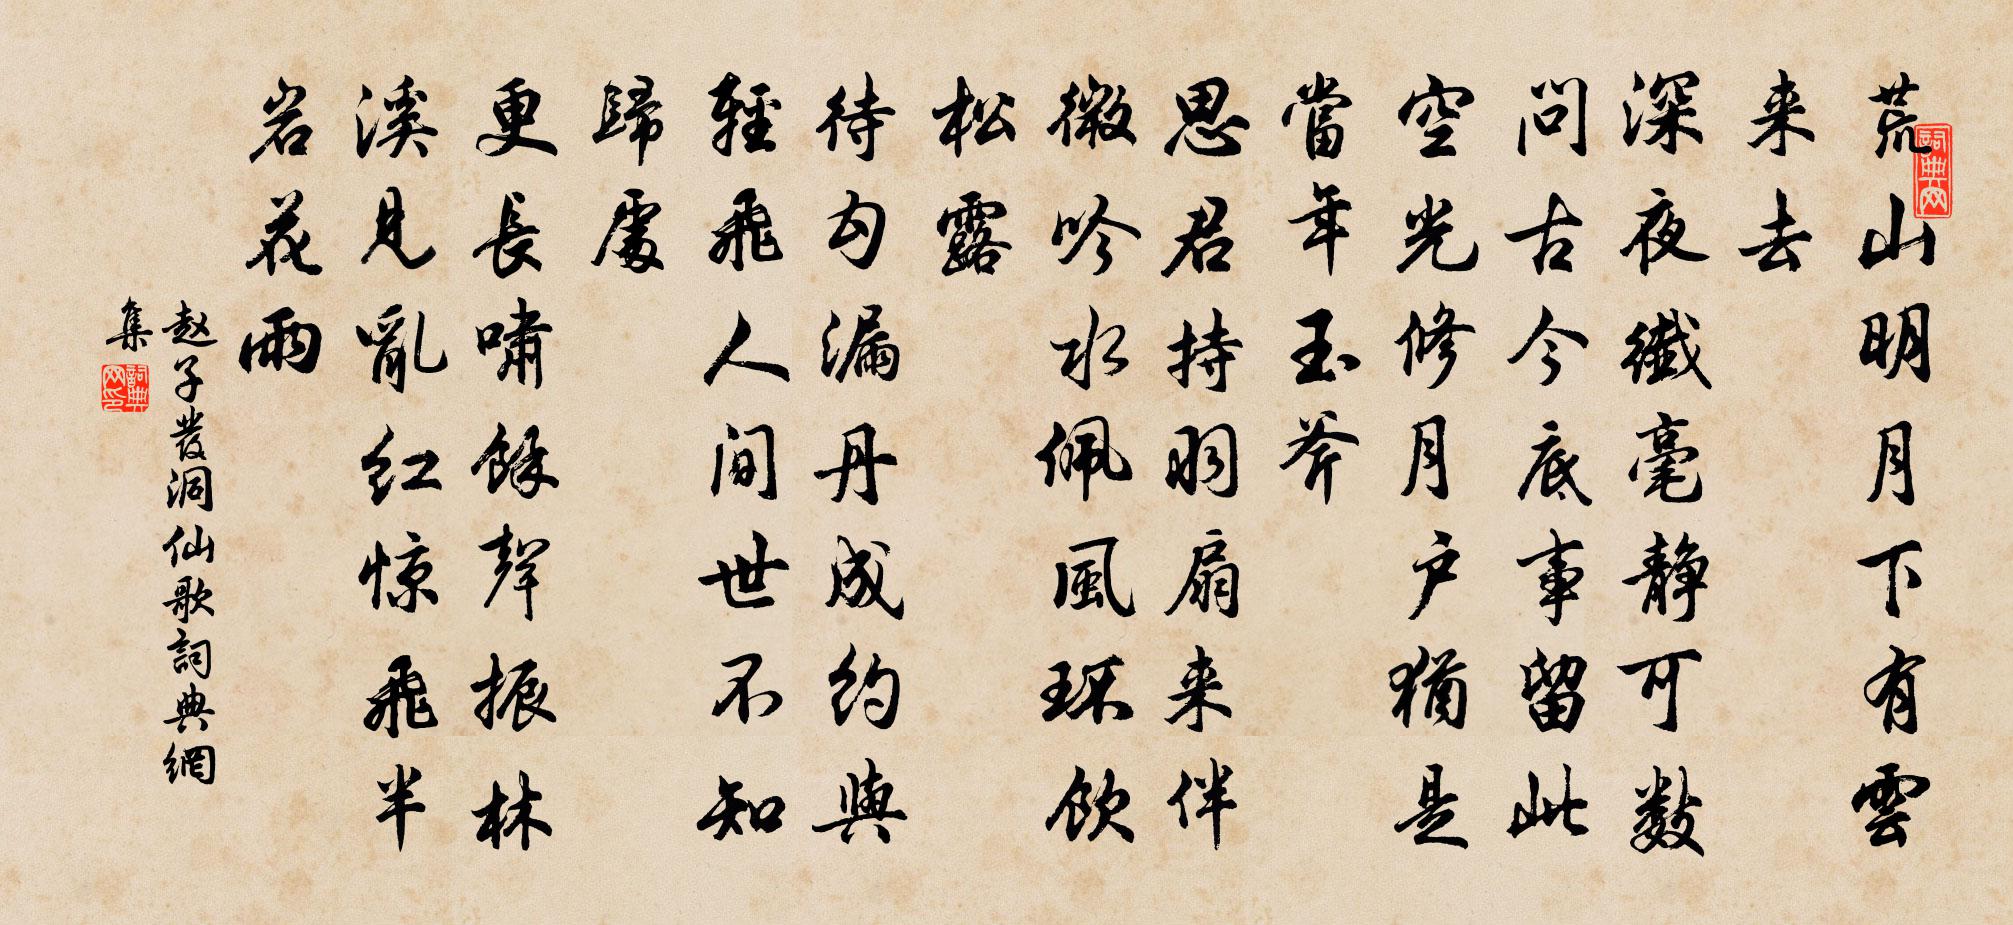 荒山明月下有雲
来去
深夜纖毫静可數
問古今底事留此
空光修月户猶是
當年玉斧
思君持羽扇来伴
微吟水佩風环飲
松露
待勾漏丹成約與
輕飛人间世不知
歸處
更長嘯餘聲振林
溪見亂红惊飛半
岩花雨
赵子發洞仙歌詞典網
集
詞典网
詞典网印